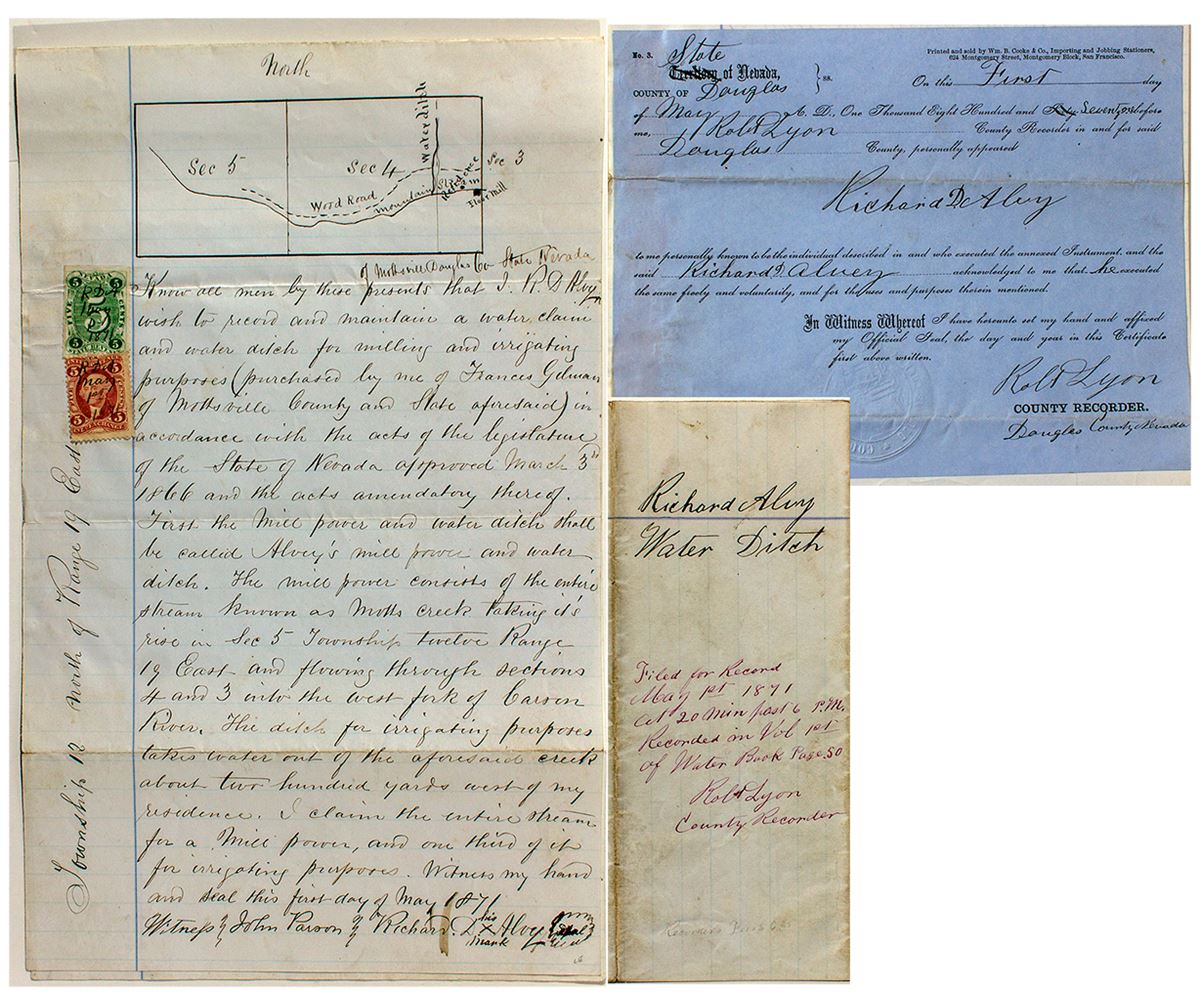 North
Sec 5
Sec 4
Sec 3
Water ditch
Wood Road
mountain
Residence
Flour Mill
of Mottsville Douglas Co State Nevada
Know all men by these presents that I. R. D Alvy
wish to record and maintain a water claim
and water ditch for milling and irrigating
purposes (purchased by me of Frances Gilman
of Mottsville County and State aforesaid) in
accordance with the acts of the legislature
of the State of Nevada approved March 3rd
1866 and the acts amendatory thereof.
First the Mill power and water ditch shall
be called Alvey's mill power and water
ditch. The mill power consists of the entire
stream known as Motts creek taking it's
rise in Sec 5 Township twelve Range
19 East and flowing through sections
4 and 3 into the west fork of Carson
River. The ditch for irrigating purposes
takes water out of the aforesaid creek
about two hundred yards west of my
residence. I claim the entire stream
for a Mill power, and one third of it
for irrigating purposes. Witness my hand
and seal this first day of May 1871
Witness John Parson Richard. D his x mark Alvy seal
Township 12 north of Range 19 East
No. 3.
State
Territory of Nevada,
COUNTY OF Douglas
} ss.
Printed and sold by Wm. B. Cooke & Co., Importing and Jobbing Stationers,
624 Montgomery Street, Montgomery Block, San Francisco.
On this First day
of May A. D., One Thousand Eight Hundred and Sixty Seventy one before
me, Robt Lyon County Recorder in and for said
Douglas County, personally appeared
Richard D Alvy
to me personally known to be the individual described in and who executed the annexed Instrument, and the
said Richard D. Alvey acknowledged to me that he executed
the same freely and voluntarily, and for the uses and purposes therein mentioned.
In Witness Whereof I have hereunto set my hand and affixed
my Official Seal, the day and year in this Certificate
first above written.
Robt Lyon
COUNTY RECORDER.
Douglas County Nevada
Richard Alvy
Water Ditch
Filed for Record
May 1st 1871
at 20 Min past 6 P.M.
Recorded on Vol 1st
of Water Book Page. 50
Robt Lyon
County Recorder